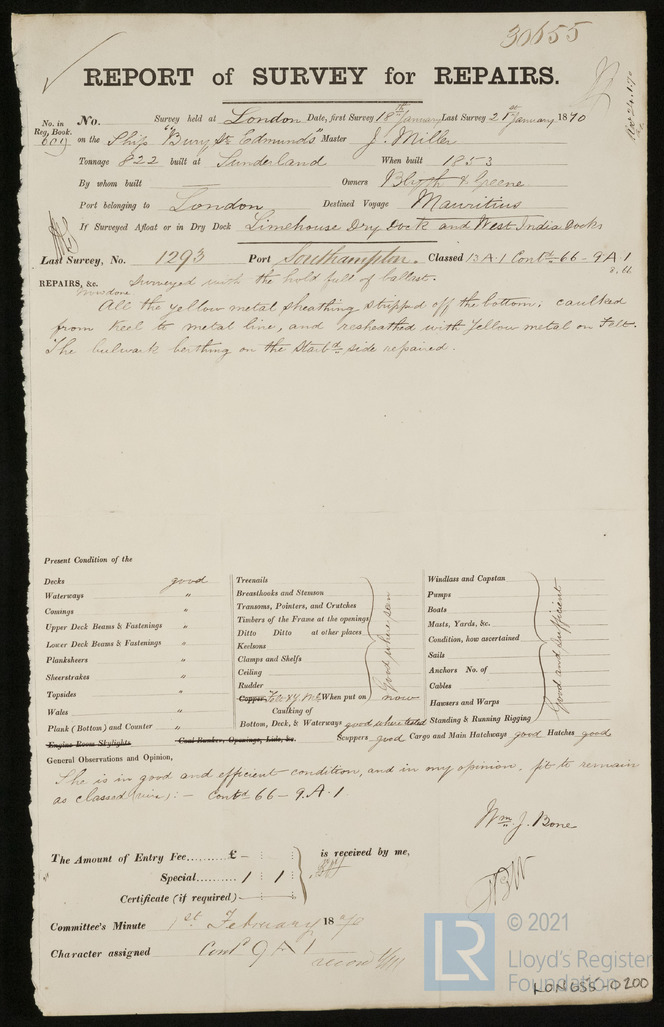 30655
REPORT of SURVEY for REPAIRS.
No. in Reg. Book. 609
No. Survey held at London Date, first Survey 18th January Last Survey 21st January 1870
on the Ship "Bury St. Edmunds" Master J. Miller
Tonnage 822 built at Sunderland When built 1853
By whom built — Owners Blyth & Greene
Port belonging to London Destined Voyage Mauritius
If Surveyed Afloat or in Dry Dock Limehouse Dry Dock and West India Docks
Last Survey, No. 1293 Port Southampton. Classed 13 A.1 Contd. 66 - 9 A.1
8.66
REPAIRS, &c. Surveyed with the hold full of ballast.
All the yellow metal sheathing stripped off the bottom; caulked
from keel to metal line, and resheathed with yellow metal on Felt.
The bulwark berthing on the Starbd. side repaired.
Present Condition of the
Decks good
Waterways "
Comings "
Upper Deck Beams & Fastenings "
Lower Deck Beams & Fastenings "
Planksheers "
Sheerstrakes "
Topsides "
Wales "
Plank (Bottom) and Counter "
Engine Room Skylights Coal Bunker, Openings, Lids, &c.
Treenails
Breasthooks and Stemson
Transoms, Pointers, and Crutches
Timbers of the Frame at the openings
Ditto Ditto at other places
Keelsons
Clamps and Shelfs
Ceiling
Rudder
good where seen
Copper, Felt & Y. M. When put on now
Caulking of
Bottom, Deck, & Waterways good where tested
Windlass and Capstan
Pumps
Boats
Masts, Yards, &c.
Condition, how ascertained
Sails
Anchors No. of
Cables
Hawsers and Warps
Standing & Running Rigging
Good and sufficient
Scuppers good Cargo and Main Hatchways good Hatches good
General Observations and Opinion,
She is in good and efficient condition, and in my opinion, fit to remain
as classed (viz): - Contd. 66 - 9. A. 1
Wm. J. Bone
The Amount of Entry Fee......... £ - : :
Special......... 1 : 1 :
Certificate (if required)......... : :
is received by me,
Committee's Minute 1st February 1870
Character assigned Contd 9 A 1
LR
© 2021
Lloyd's Register
Foundation
LON655-0200